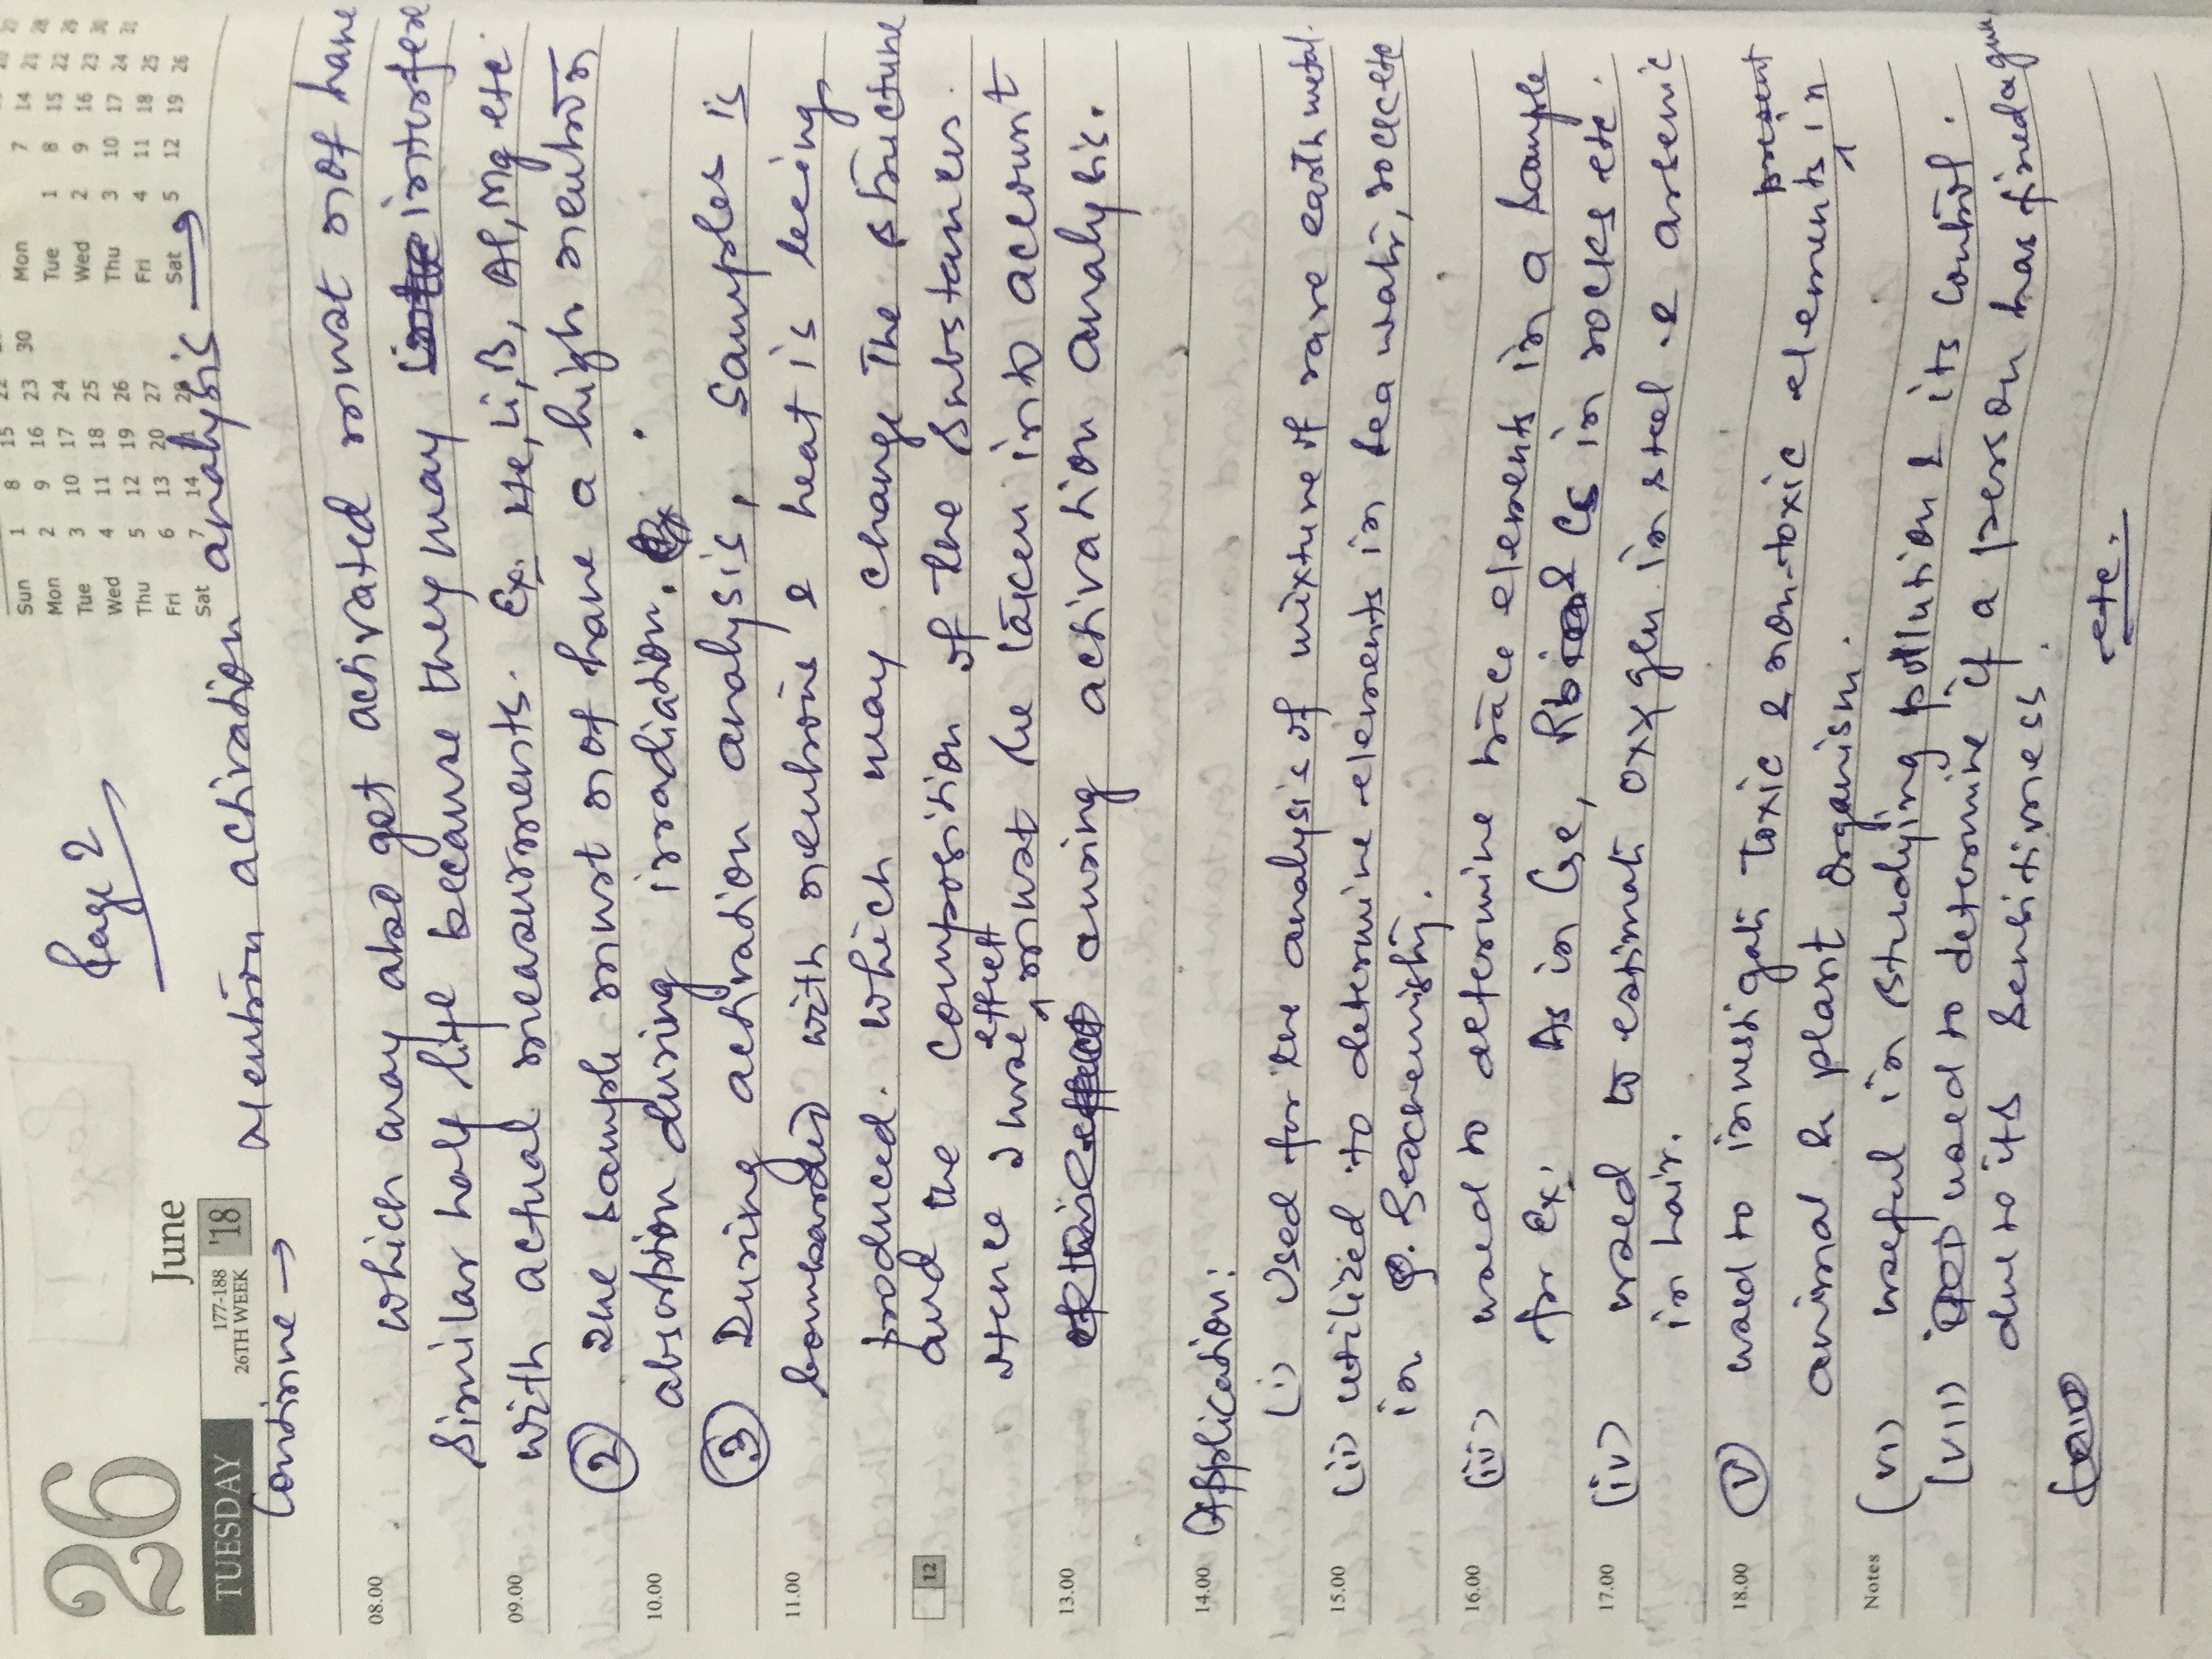 Page 2
26
June
TUESDAY
177-188
26TH WEEK
'18
Sun 1 8 15 22
Mon 2 9 16 23 30
Tue 3 10 17 24
Wed 4 11 18 25
Thu 5 12 19 26
Fri 6 13 20 27
Sat 7 14 21 28
Mon 7 14 21 28
Tue 1 8 15 22 29
Wed 2 9 16 23 30
Thu 3 10 17 24 31
Fri 4 11 18 25
Sat 5 12 19 26
Continue → Neutron activation analysis →
08.00
which may also get activated must not have
similar half life because they may interfere
09.00
with actual measurments. Ex. He, Li, B, Al, Mg etc.
② The sample must not have a high neutron
10.00
absorbtion during irradiation.
③ During activation analysis, samples is
11.00
bombarded with neutrons & heat is being
produced. which may change the structure
12
and the composition of the substances.
Hence these effect must be taken into account
13.00
during activation analysis.
14.00
Application:
(i) Used for the analysis of mixture of rare earth metal.
15.00
(ii) utilized to determine elements in sea water, rock etc
in Geochemistry.
16.00
(iii) used to determine trace elements in a sample
for Ex. As in Ge, Rb & Cs in rocks etc.
17.00
(iv) used to estimate oxygen in steel & arsenic
in hair.
18.00
(v) used to investigate toxic & non-toxic elements present in
animal & plant organism.
Notes
(vi) useful in studying pollution & its control.
(vii) used to determine if a person has fired a gun
due to its sensitivness.
etc.